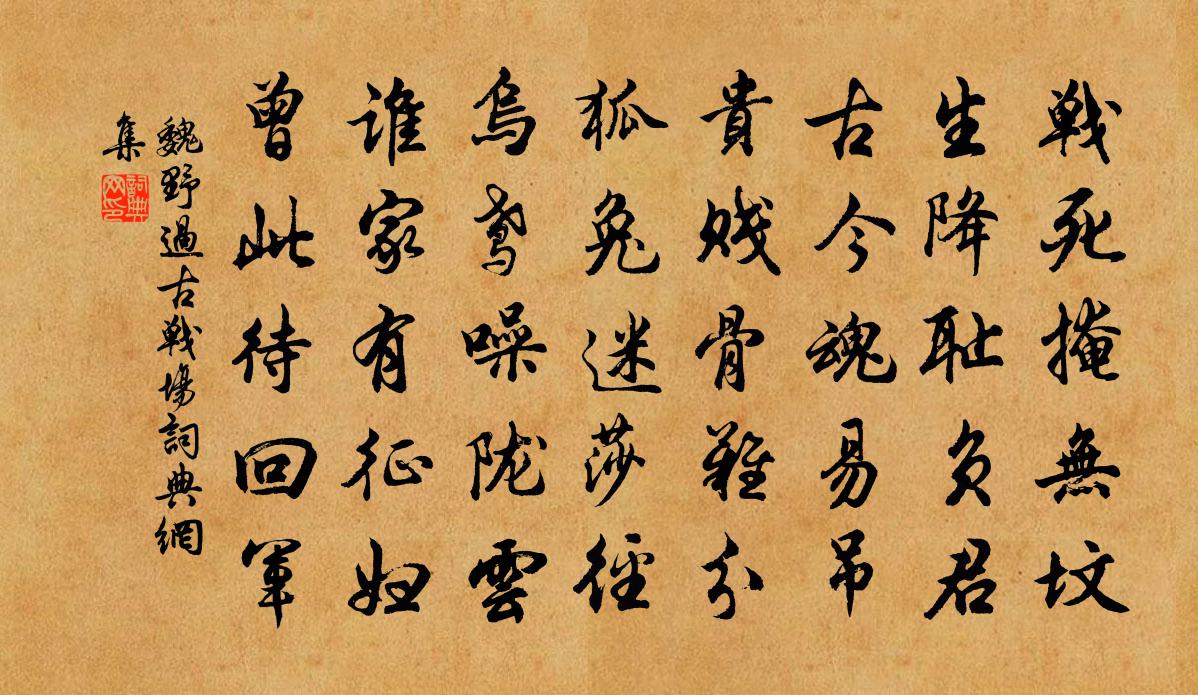 戦死掩無墳
生降耻负君
古今魂易吊
貴贱骨難分
狐兔迷莎徑
烏鸢噪陇雲
谁家有征妇
曾此待回軍
魏野過古戦場詞典網
集
詞典
网印